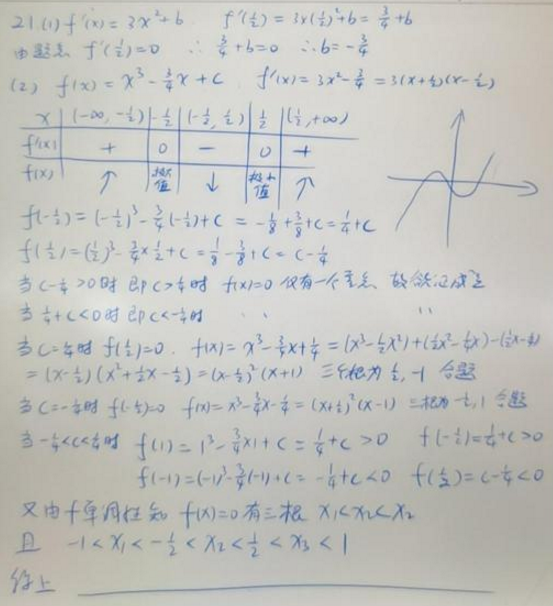 21.(1) f'(x) = 3x²+b f'(½) = 3×(½)²+b = ¾+b
由题意 f'(½)=0 ∴ ¾+b=0 ∴b=-¾
(2) f(x) = x³-¾x+c f'(x) = 3x²-¾ = 3(x+½)(x-½)
x (-∞,-½) -½ (-½,½) ½ (½,+∞)
f'(x) + 0 − 0 +
f(x) ↑ 极大值 ↓ 极小值 ↑
f(-½) = (-½)³-¾(-½)+c = -⅛+⅜+c=¼+c
f(½)=(½)³-¾×½+c=⅛-⅜+c= c-¼
当c-¼>0时 即c>¼时 f(x)=0 仅有一个零点 故欲证成立
当¼+c<0时 即c<-¼时 ‥ ‥
当c=¼时 f(½)=0. f(x)= x³-¾x+¼ = (x³-½x²)+(½x²-¼x)-(½x-¼)
=(x-½)(x²+½x-½)=(x-½)²(x+1) 三个根为½,-1 合题
当c=-¼时 f(-½)=0 f(x)=x³-¾x-¼=(x+½)²(x-1) 三根为-½,1 合题
当-¼<c<¼时 f(1)=1³-¾×1+c=¼+c>0 f(-½)=¼+c>0
f(-1)=(-1)³-¾(-1)+c=-¼+c<0 f(½)=c-¼<0
又由f单调性知 f(x)=0有三根 x₁<x₂<x₂
且 -1<x₁<-½<x₂<½<x₃<1
综上